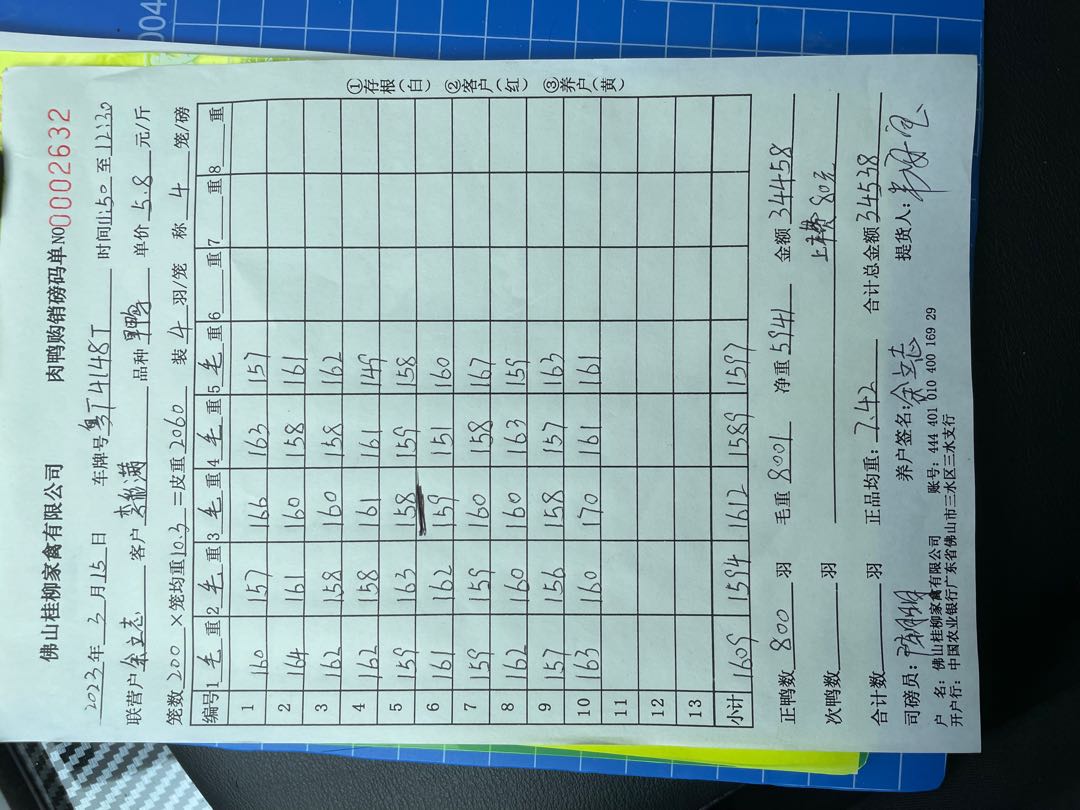 004
佛山桂柳家禽有限公司 肉鸭购销磅码单 NO0002632
2023年 3月15日 车牌号粤T4148T 时间11:50至12:30
联营户余立志 客户 满 品种 单价5.8元/斤
笼数200×笼均重10.3=皮重2060 装4羽/笼 称4笼/磅
编号 1毛重 2毛重 3毛重 4毛重 5毛重 6 重 7 重 8 重
1 160 157 166 163 157
2 164 161 160 158 161
3 162 158 160 158 162
4 162 158 161 161 149
5 159 163 158 159 158
6 161 162 159 151 160
7 159 159 160 158 167
8 162 160 160 163 159
9 157 156 158 157 163
10 163 160 170 161 161
11
12
13
小计 1609 1594 1612 1589 1597
正鸭数800羽 毛重8001 净重5941 金额34458
次鸭数 羽 上车费80元
合计数 羽 正品均重:7.42 合计总金额34538
司磅员: 养户签名:余立志 提货人:
户 名:佛山桂柳家禽有限公司 账号:444 401 010 400 169 29
开户行:中国农业银行广东省佛山市三水区三水支行
①存根(白) ②客户(红) ③养户(黄)